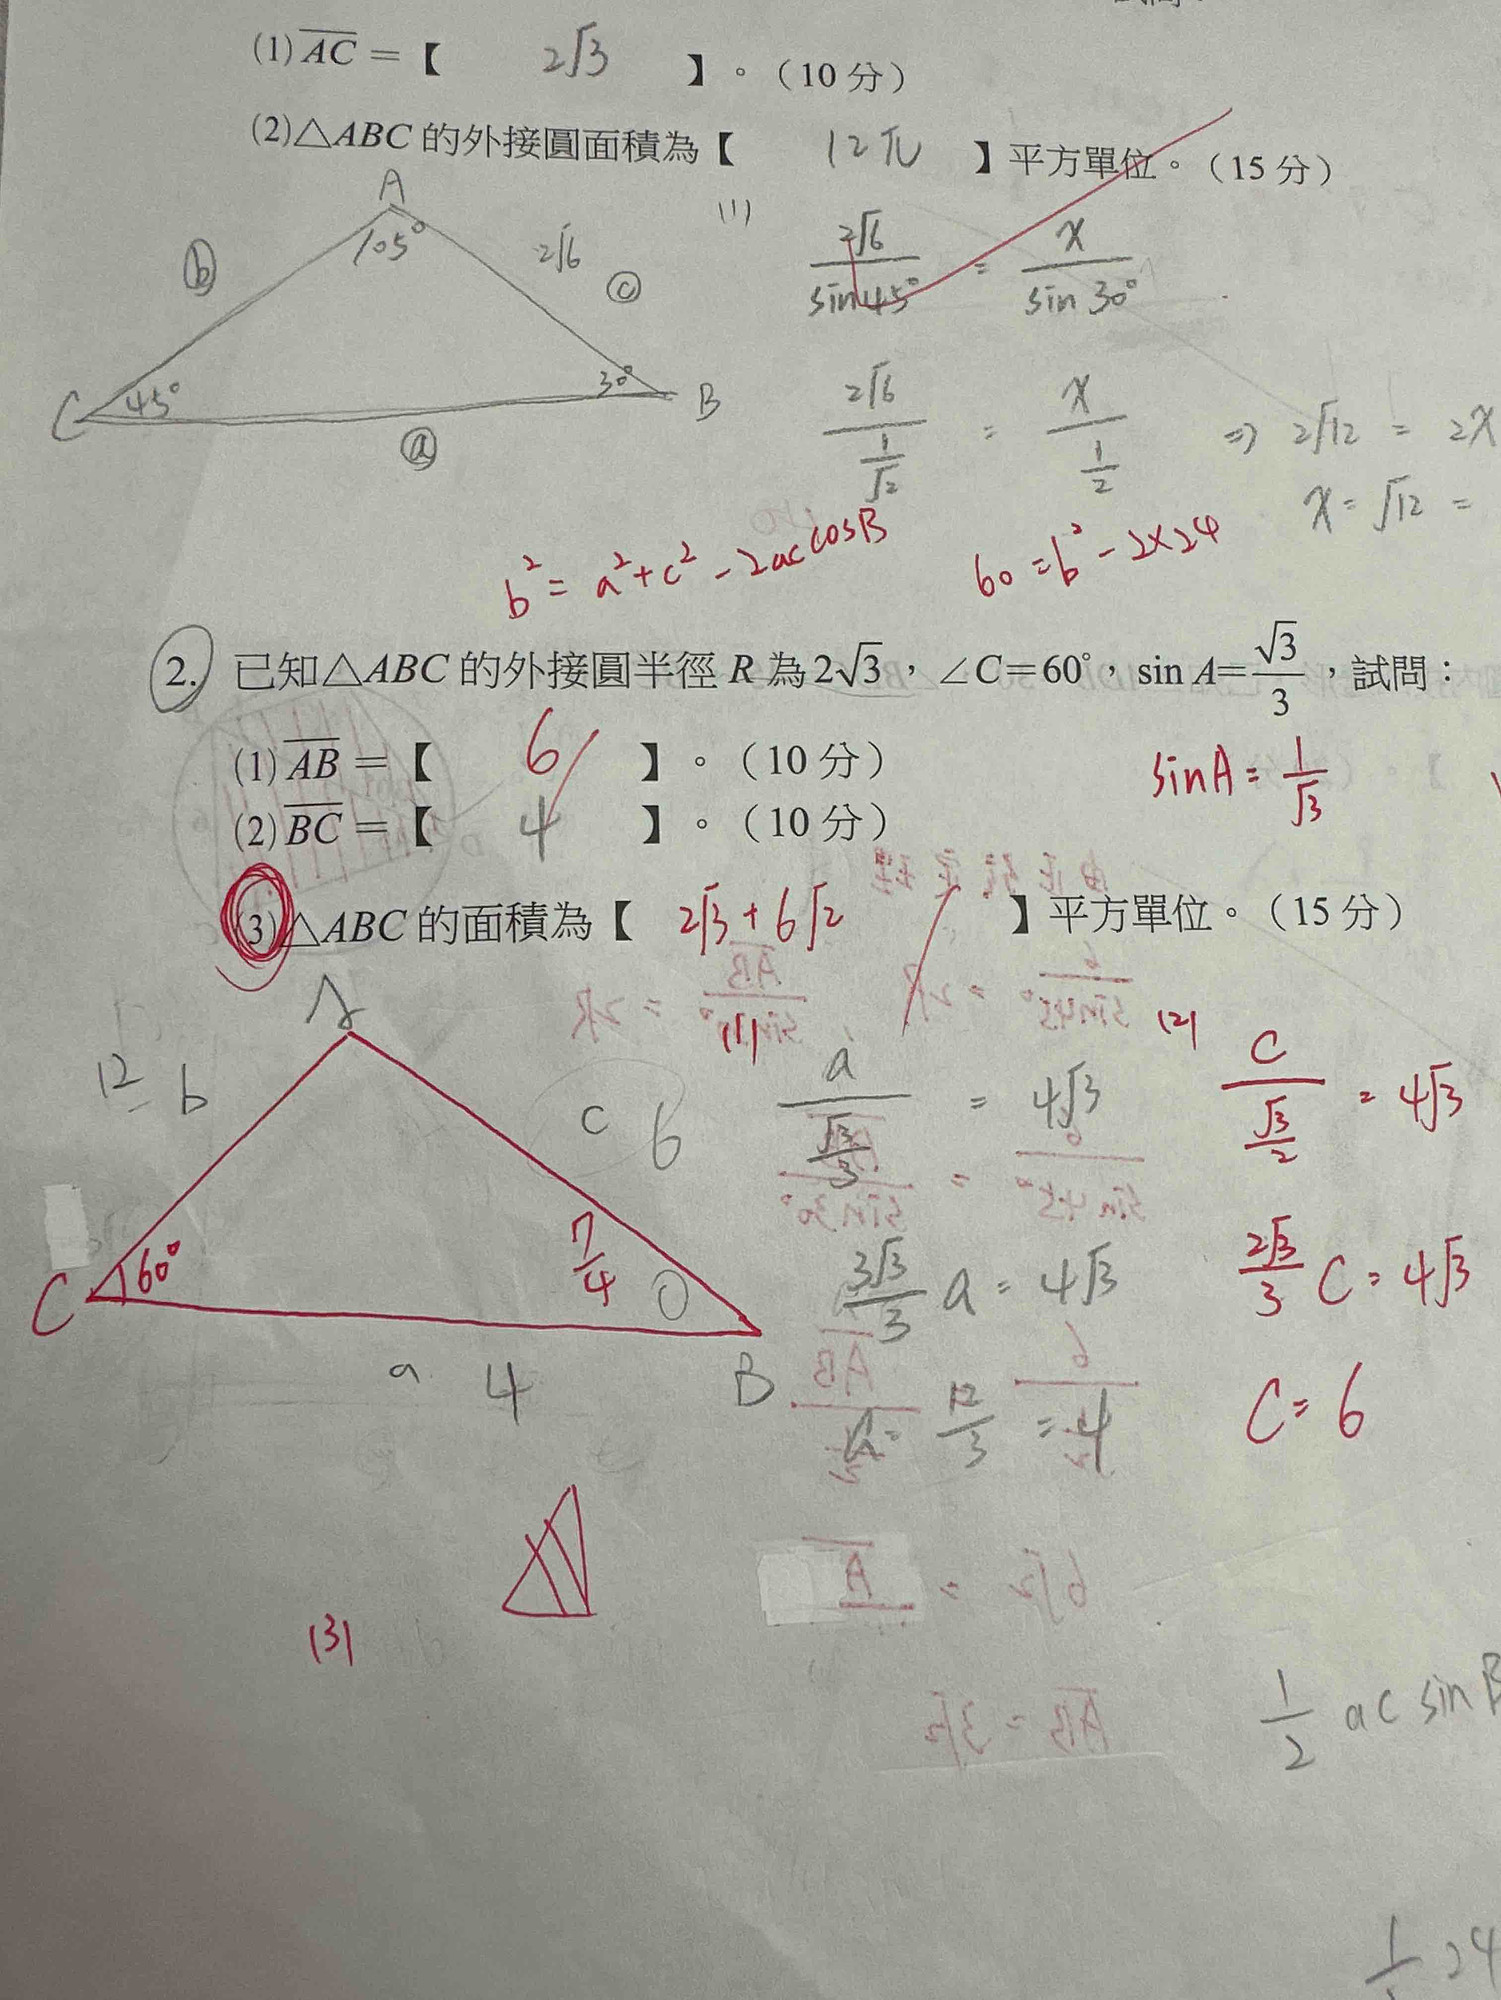 (1) AC = 【 2√3 】。(10 分)
(2)△ABC 的外接圓面積為【 12π 】平方單位。(15 分)
A
105°
b
2√6
c
C
45°
30°
B
a
(1)
2√6/sin45° = x/sin30°
2√6/(1/√2) = x/(1/2) ⇒ 2√12 = 2x
x = √12 =
b² = a² + c² - 2ac cosB
60 = b² - 2×24
2. 已知△ABC 的外接圓半徑 R 為 2√3，∠C=60°，sin A=√3/3，試問：
(1) AB = 【 6 】。(10 分)
sinA = 1/√3
(2) BC = 【 4 】。(10 分)
(3)△ABC 的面積為【 2√3+6√2 】平方單位。(15 分)
A
12
b
c
6
C
60°
7/4
B
a
4
(1)
a/(√3/3) = 4√3
3√3/3 a = 4√3
a = 12/3 = 4
(2)
C/(√3/2) = 4√3
2√3/3 C = 4√3
C = 6
(3)
1/2 ac sinB
24